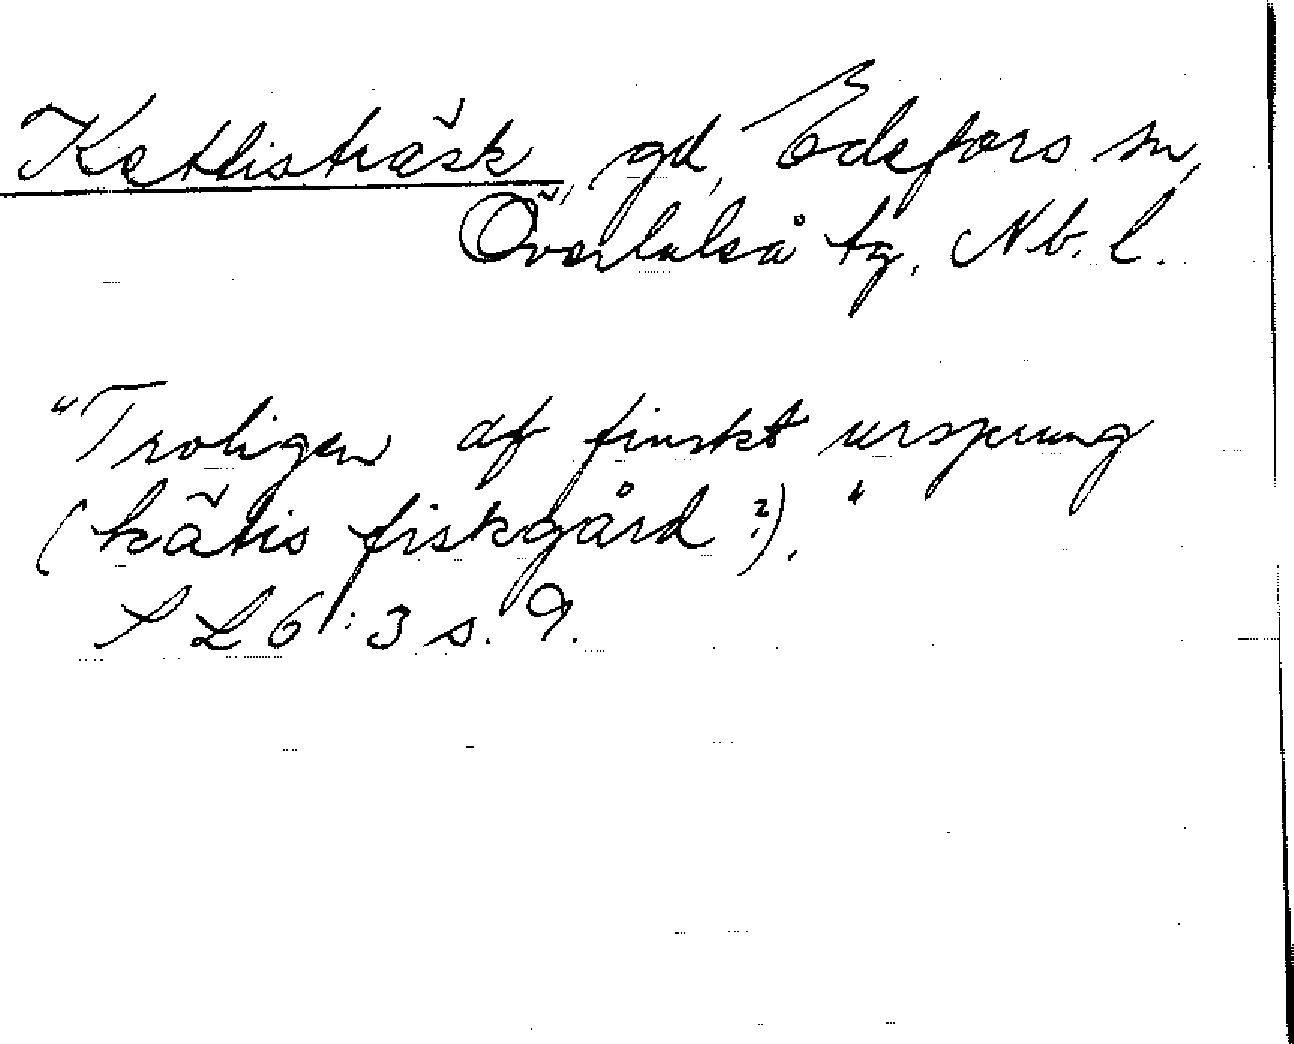 Kattisträsk, gd, Edefors sn,
Överluleå tg, Nb. l.
"Troligen af finskt ursprung
(kätis fiskgård?)."
SL 6:3 s. 9.